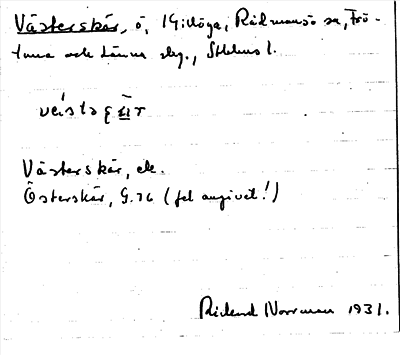 Västerskär, ö, i Gillöga, Rådmansö sn, Frö-
tuna och Länna skg., Sthlms l.
Västerskär, ek.
Österskär, G.76 (fel angivet!)
Rickard Norrman 1931.